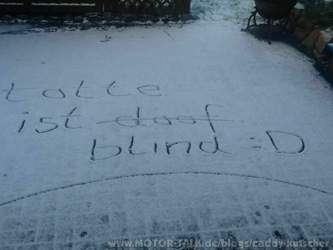 talte
ist doof
blind :D
www.MOTOR-TALK.de/blogs/caddy-kutscher